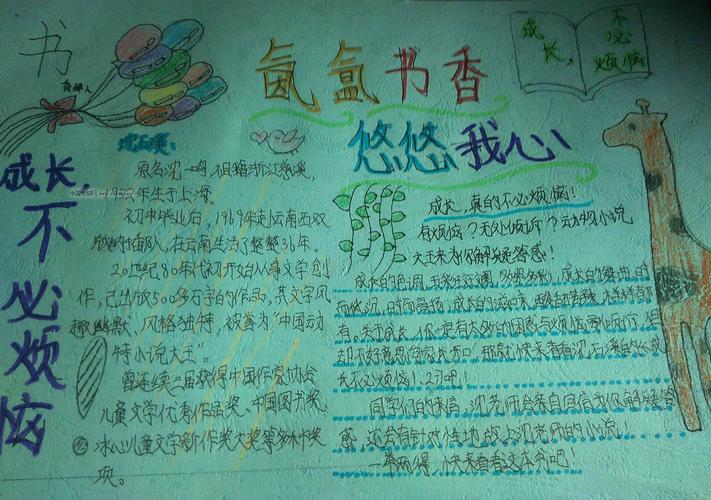 书
成长，
不必
烦恼
氤氲书香
悠悠我心
成长
不
必
烦
恼
沈石溪：
原名沈一鸣，祖籍浙江慈溪，
1952年生于上海。
初中毕业后，1969年赴云南西双
版纳插队，在云南生活了整整36年。
20世纪80年代初开始从事文学创
作，已出版500多万字的作品。其文字风
趣幽默、风格独特，被誉为“中国动
物小说大王”。
曾连续三届获得中国作家协会
儿童文学优秀作品奖、中国图书奖、
冰心儿童文学新作奖大奖等多种奖
项。
成长，真的不必烦恼！
有烦恼？无处倾诉？动物小说
大王来为你解疑答惑！
成长的色调，五彩
成长的
有。关于成长，你一定有太多的困惑与烦恼
却不好意思向家长
长不必烦恼》
同学们的来信，沈老师会亲自回信为你解疑答
惑，还会有针对性地放上沈老师的小说！
一举两得，快来看看这本书吧！